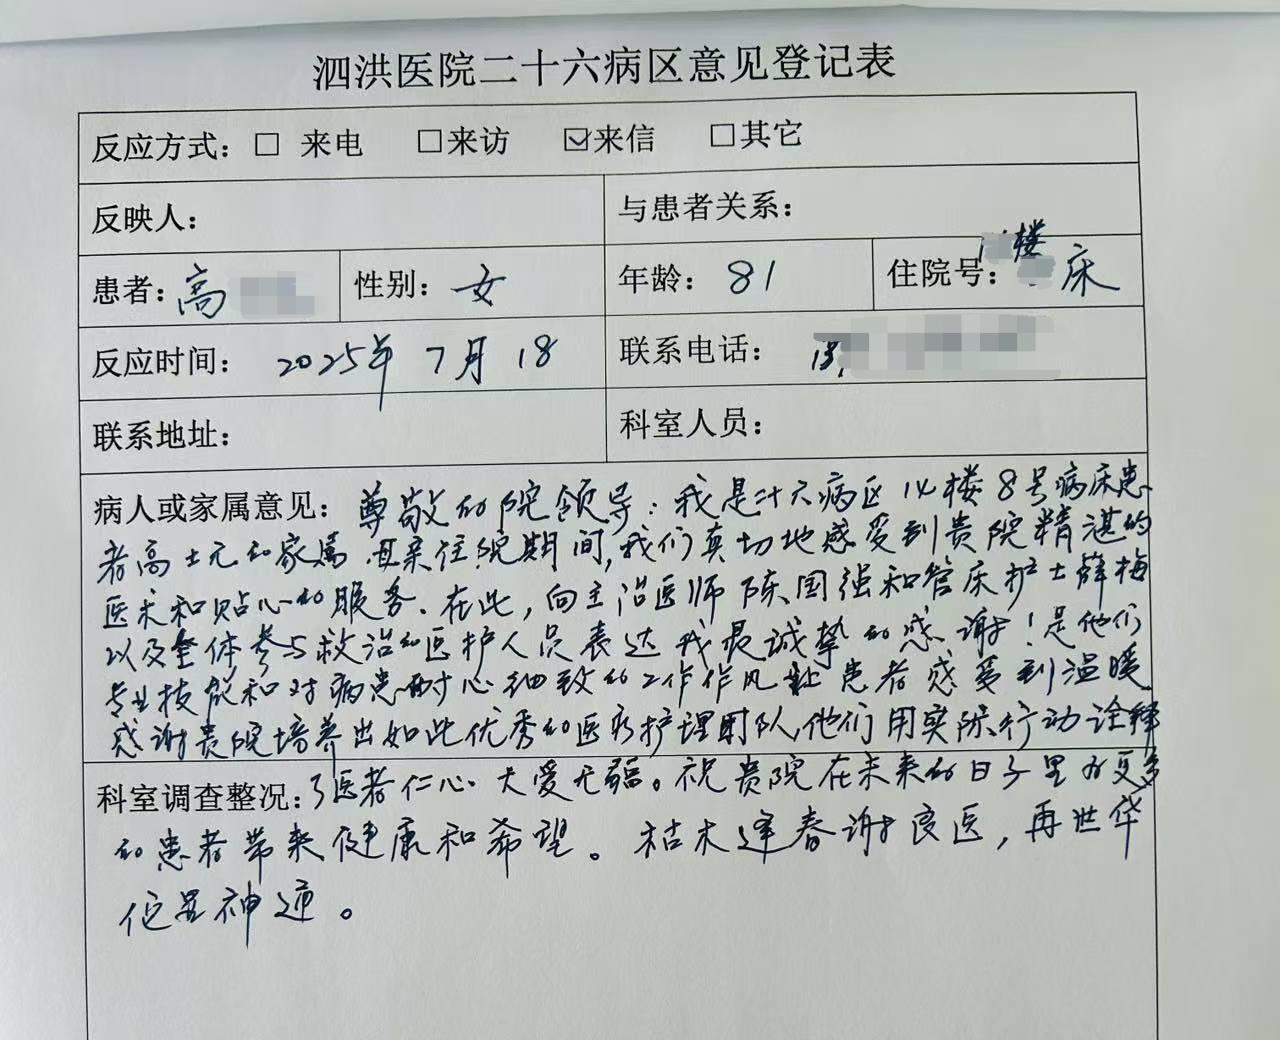 泗洪医院二十六病区意见登记表
反应方式：□ 来电 □来访 ☑来信 □其它
反映人： 与患者关系：
楼
患者：高 性别：女 年龄：81 住院号： 床
反应时间： 2025年 7月 18 联系电话：
联系地址： 科室人员：
病人或家属意见：尊敬的院领导：我是二十六病区14楼8号病床患
者高士元的家属 母亲住院期间，我们真切地感受到贵院精湛的
医术和贴心的服务．在此，向主治医师陈国强和管床护士薛梅
以及全体参与救治的医护人员表达我最诚挚的感谢！是他们
专业技能和对病患耐心细致的工作作风让患者感受到温暖
感谢贵院培养出如此优秀的医疗护理团队，他们用实际行动诠释
科室调查整况：了医者仁心、大爱无疆。祝贵院在未来的日子里为更多
的患者带来健康和希望。枯木逢春谢良医，再世华
佗显神通。